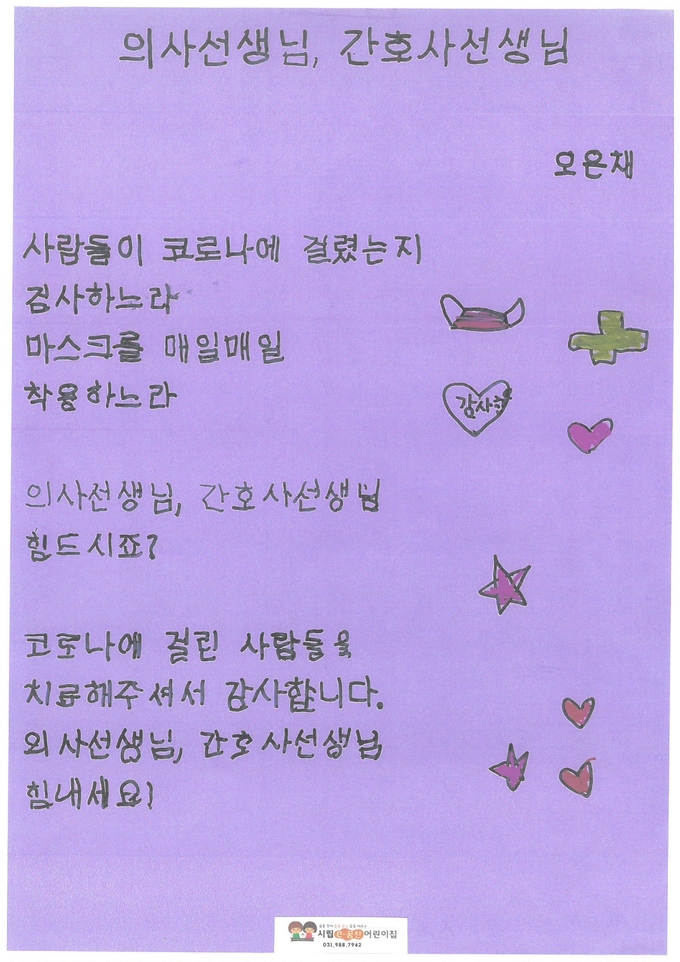 의사선생님, 간호사선생님
오은채
사람들이 코로나에 걸렸는지
검사하느라
마스크를 매일매일
착용하느라
감사합
의사선생님, 간호사선생님
힘드시죠?
코로나에 걸린 사람들을
치료해주셔서 감사합니다.
외사선생님, 간호사선생님
힘내세요!
시립 어린이집
031.988.7942